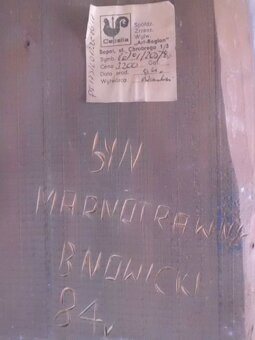 Cepelia
Spółdz.
Zrzesz.
Wytw.
"Art-Region"
Sopot, ul. Chrobrego 1/3
Symb.
Cena 3200
Data prod.
Wytwórca
SYN
MARNOTRAWNY
B. NOWICKI
84r